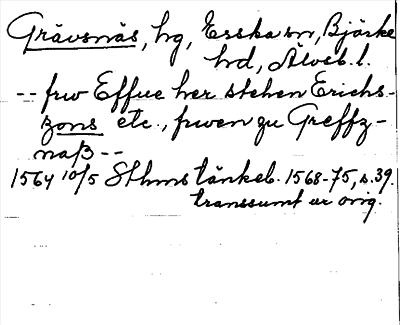 Grävsnäs, hg, Erska sn, Bjärke
hd, Älvsb. l.
-- frw Effue her stehen Erichs-
zons etc., frwen zu Greffz-
naß --
1564 10/5 Sthms tänkeb. 1568-75, s. 39.
transsumt ur orig.